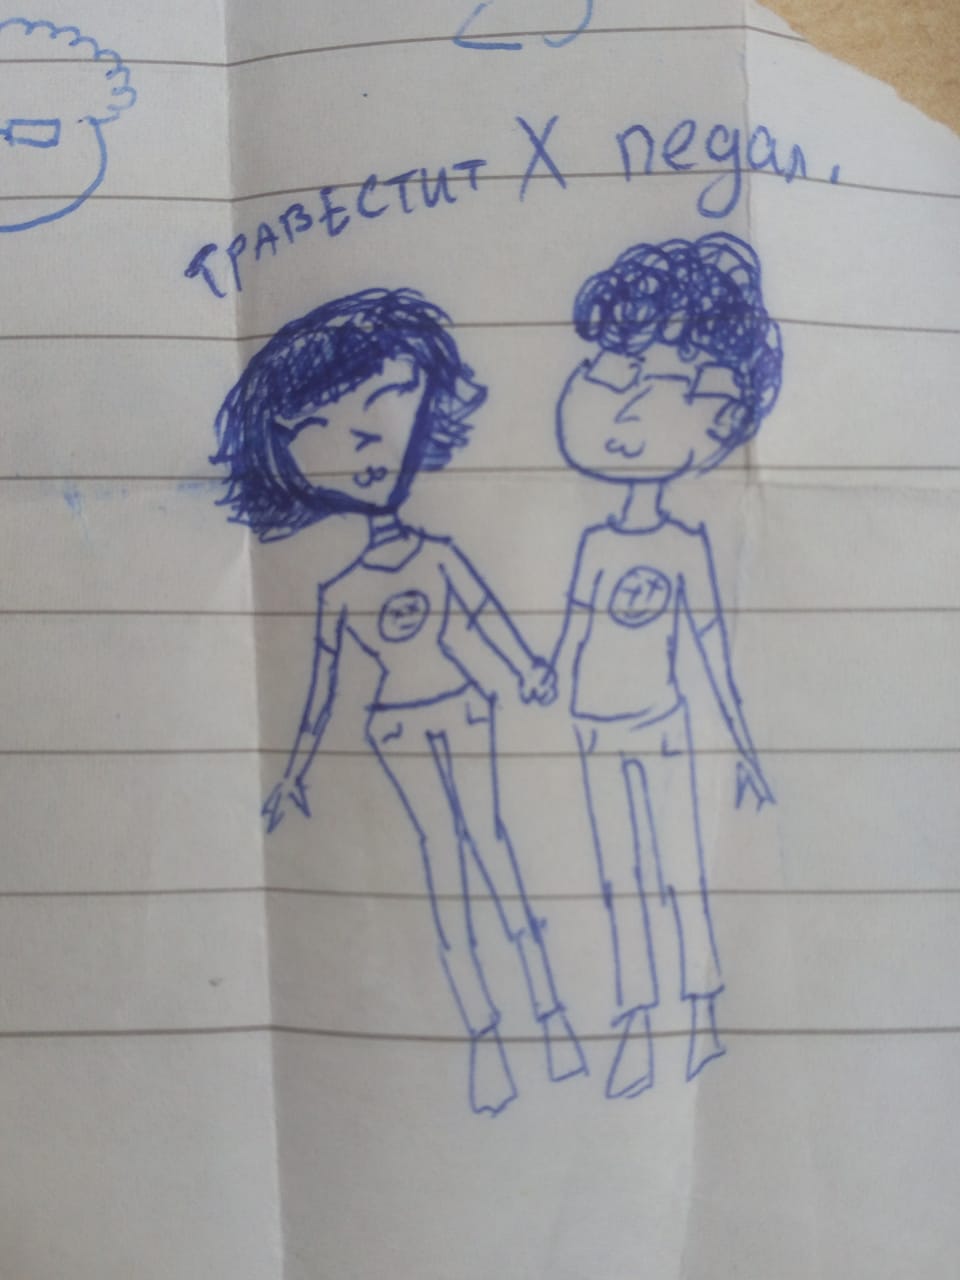 ТРАВЕСТИТ X педал.